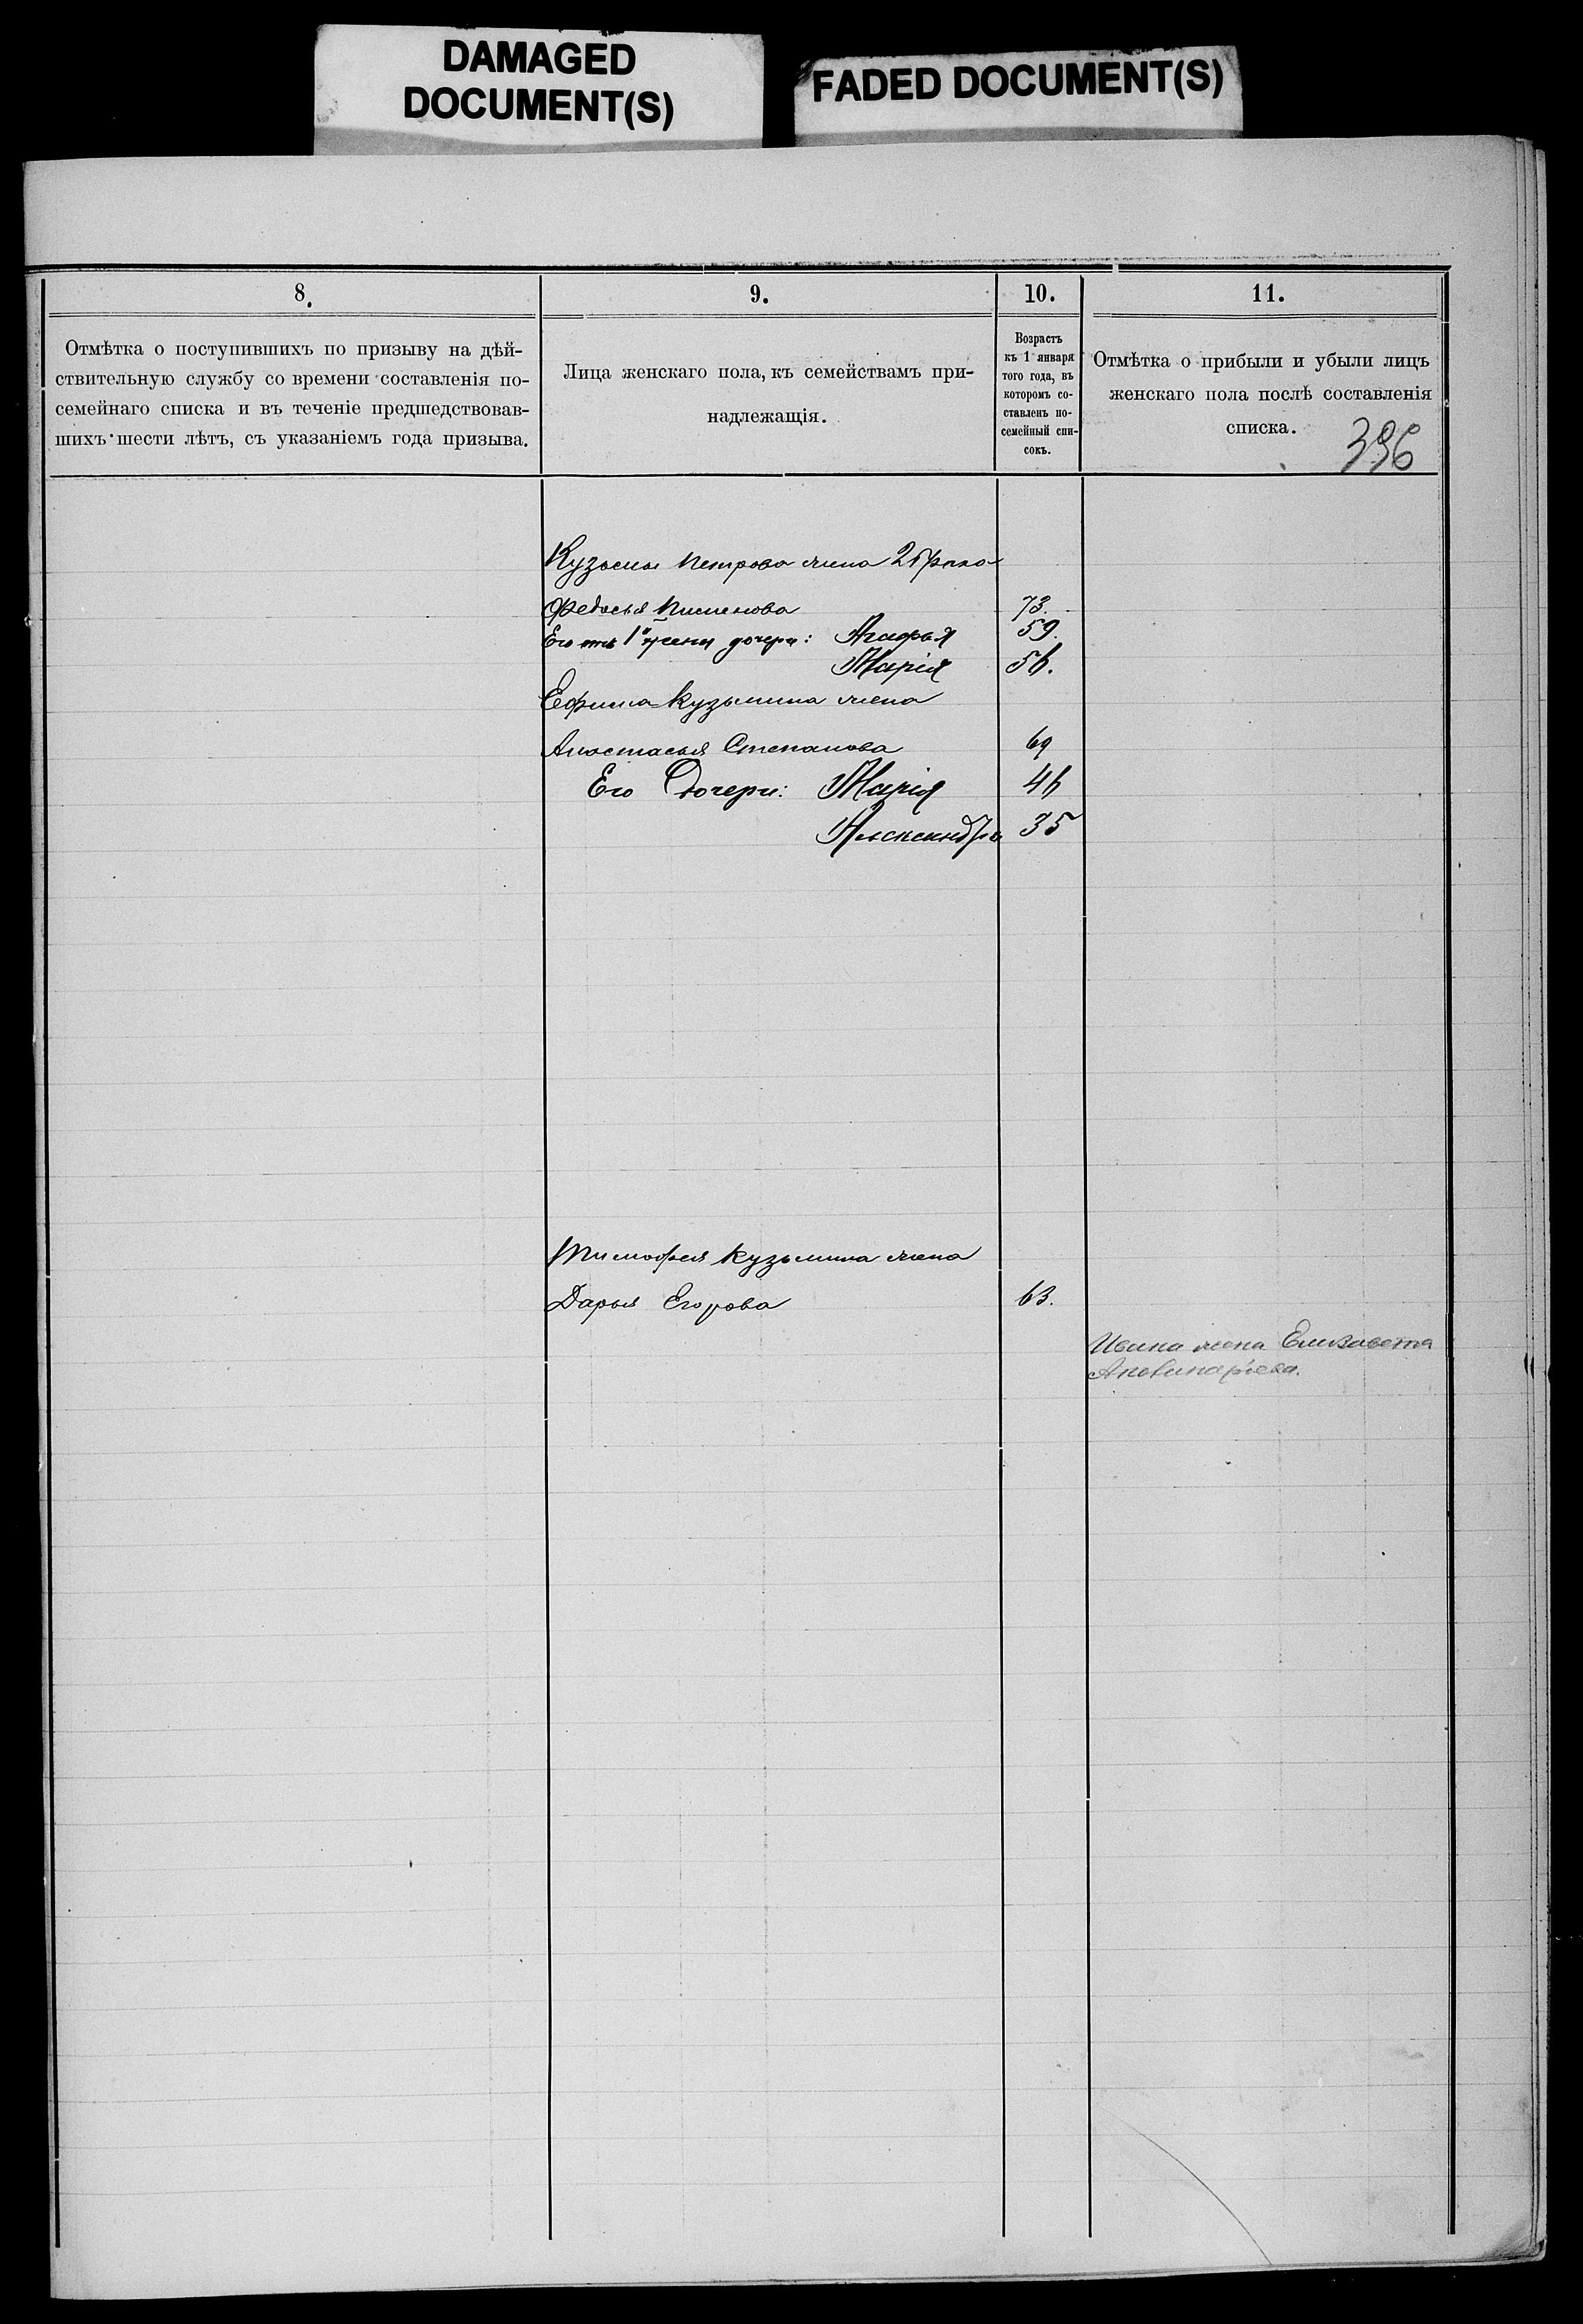 DAMAGED
DOCUMENT(S)
FADED DOCUMENT(S)
8.
9.
10.
11.
Отмѣтка о поступившихъ по призыву на дѣй-
ствительную службу со времени составленія по-
семейнаго списка и въ теченіе предшедствовав-
шихъ шести лѣтъ, съ указаніемъ года призыва.
Лица женскаго пола, къ семействамъ при-
надлежащія.
Возрастъ
къ 1 января
того года, въ
которомъ со-
ставленъ по-
семейный спи-
сокъ.
Отмѣтка о прибыли и убыли лицъ
женскаго пола послѣ составленія
списка.
396
Кузьмы Петрова жена 2 брака
Федосья Пименова 73.
Его отъ 1й жены дочери: Агафья 59.
Марія 56.
Ефима Кузьмина жена
Анастасья Степанова 69
Его Дочери: Марія 46
Александра 35
Тимофея Кузьмина жена
Дарья Егорова 63.
Ивана жена Елизавета